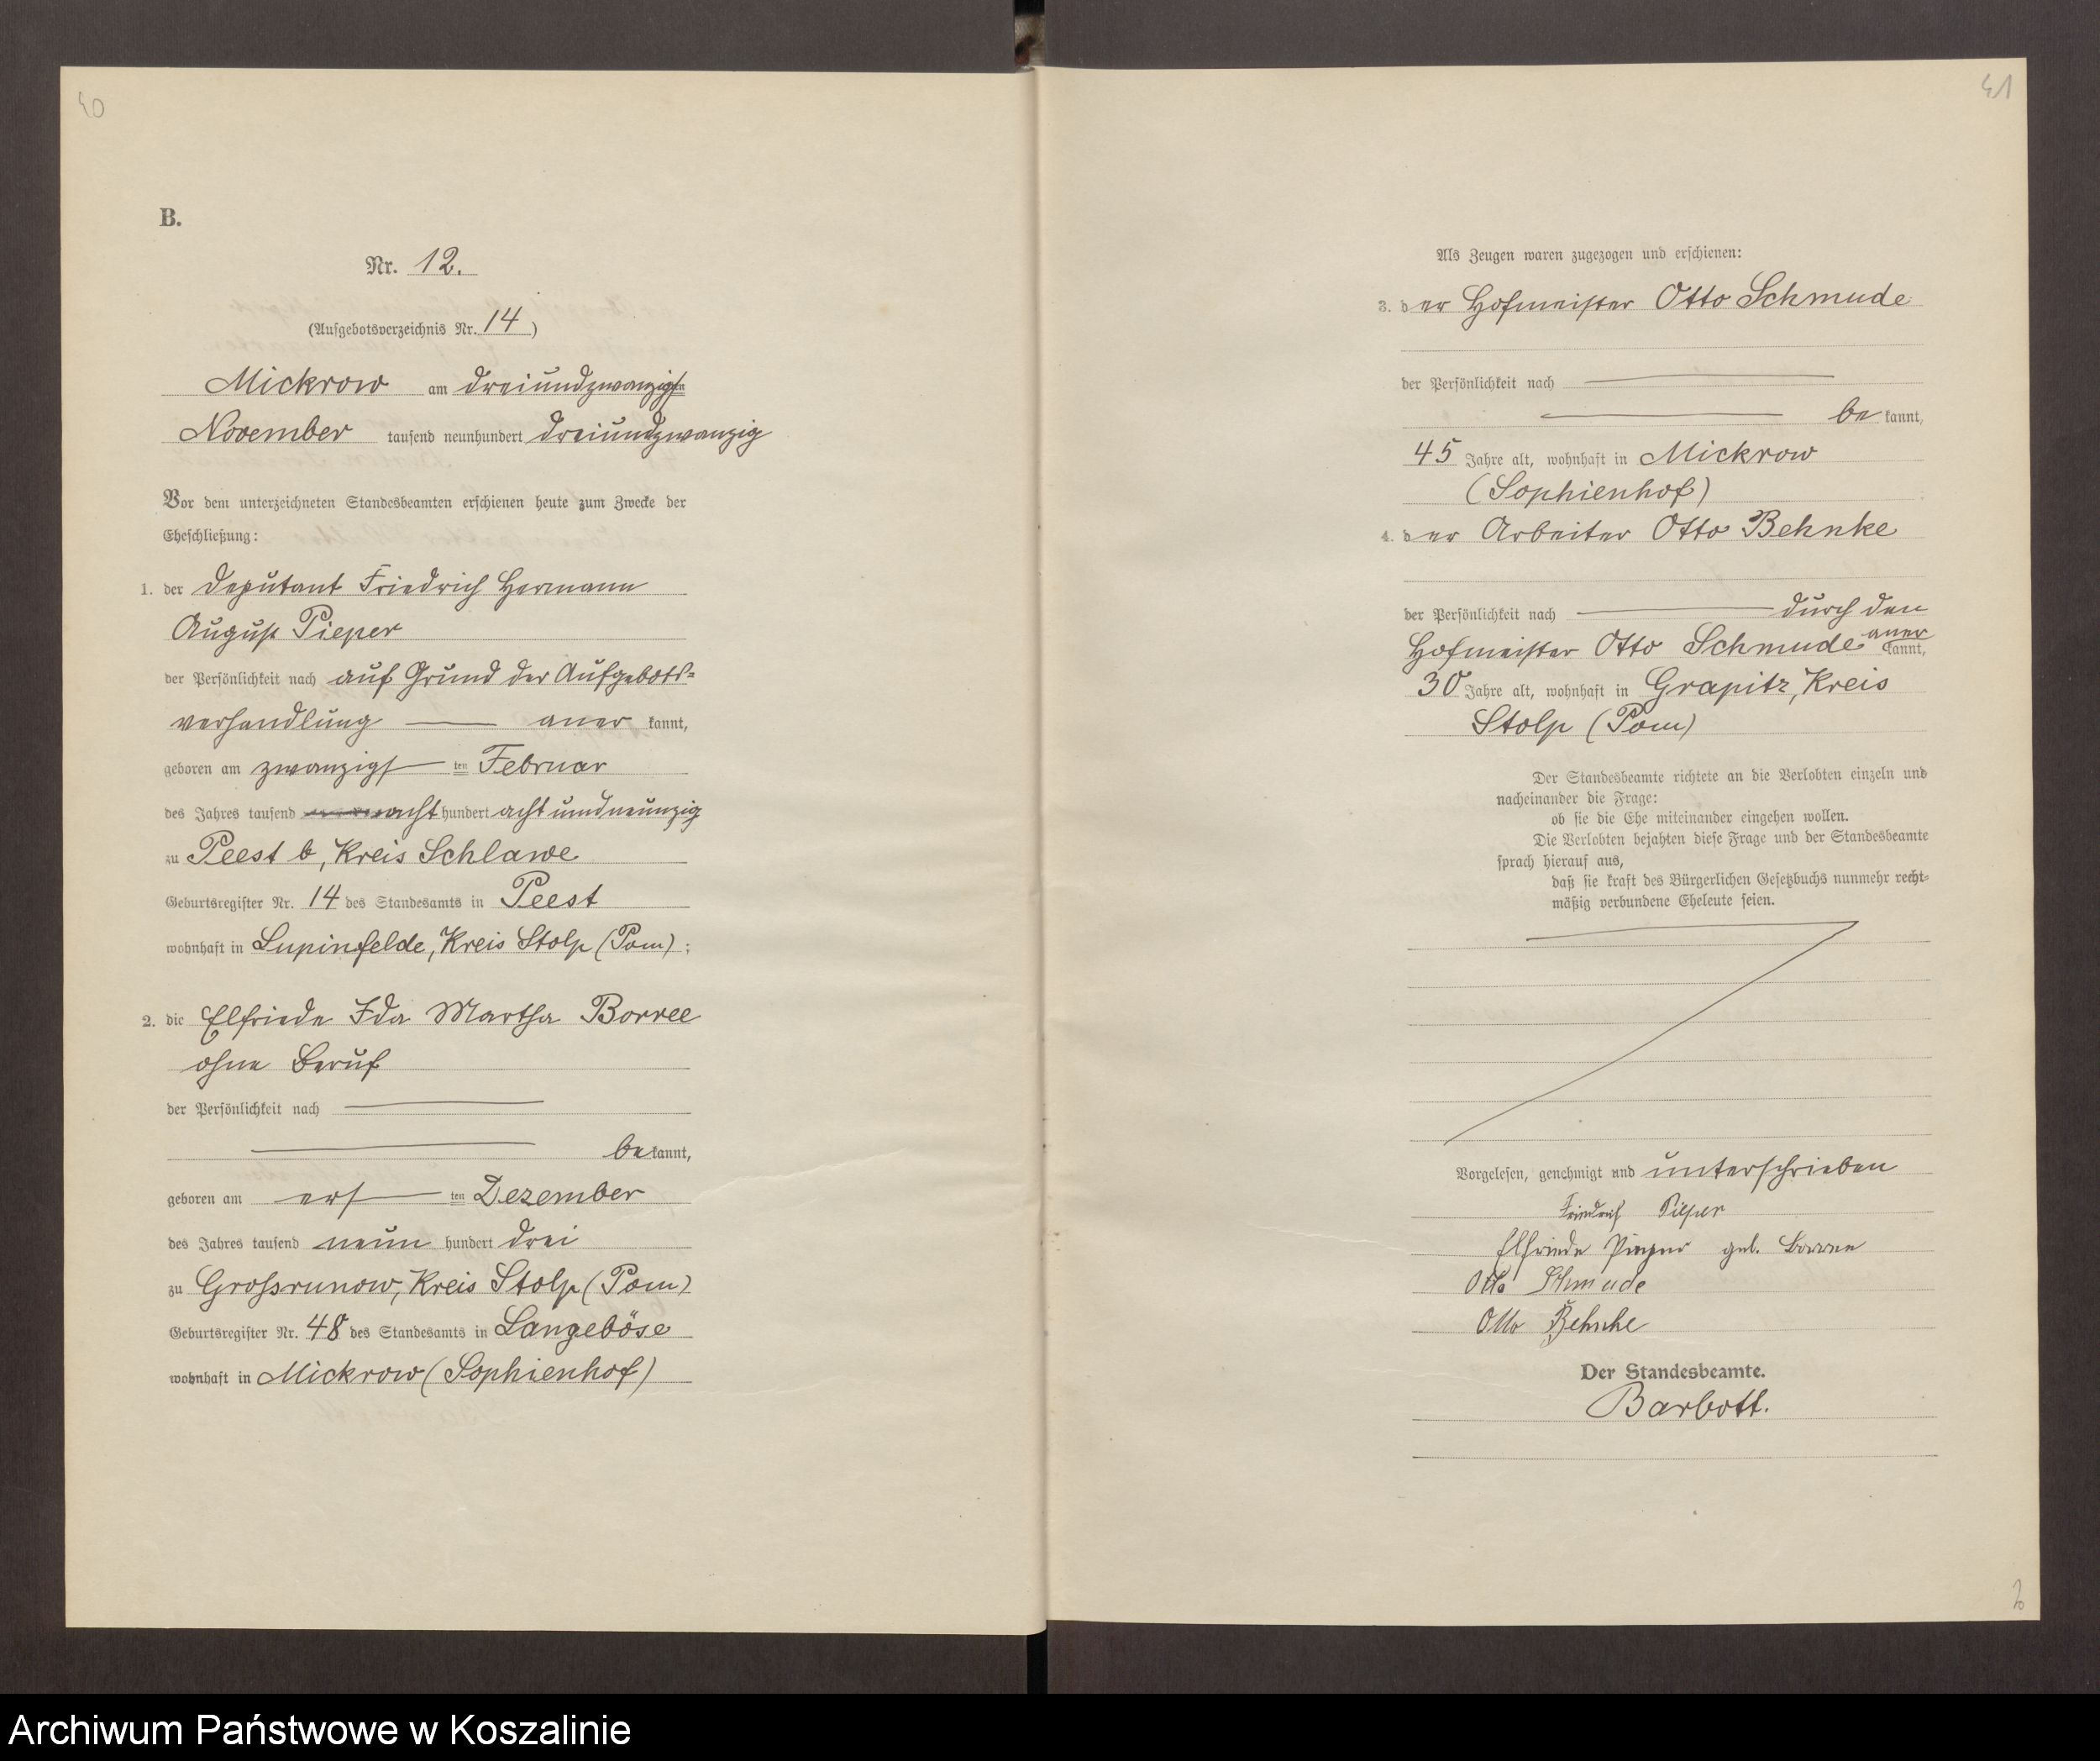 40
B.
Nr. 12.
(Aufgebotsverzeichnis Nr. 14)
Mickrow am dreiundzwanzigsten
November tausend neunhundert dreiundzwanzig
Vor dem unterzeichneten Standesbeamten erschienen heute zum Zwecke der
Eheschließung:
1. der Deputant Friedrich Hermann
August Pieper
der Persönlichkeit nach auf Grund der Aufgebots=
verhandlung — aner kannt,
geboren am zwanzigst ten Februar
des Jahres tausend acht hundert achtundneunzig
zu Peest b, Kreis Schlawe
Geburtsregister Nr. 14 des Standesamts in Peest
wohnhaft in Lupinfelde, Kreis Stolp (Pom) ;
2. die Elfriede Ida Martha Borree
ohne Beruf
der Persönlichkeit nach —
— be kannt,
geboren am erst ten Dezember
des Jahres tausend neun hundert drei
zu Grossrunow, Kreis Stolp (Pom)
Geburtsregister Nr. 48 des Standesamts in Langeböse
wohnhaft in Mickrow (Sophienhof)
41
Als Zeugen waren zugezogen und erschienen:
3. der Hofmeister Otto Schmude
der Persönlichkeit nach —
— be kannt,
45 Jahre alt, wohnhaft in Mickrow
(Sophienhof)
4. der Arbeiter Otto Behnke
der Persönlichkeit nach — durch den
Hofmeister Otto Schmude aner kannt,
30 Jahre alt, wohnhaft in Grapitz, Kreis
Stolp (Pom)
Der Standesbeamte richtete an die Verlobten einzeln und
nacheinander die Frage:
ob sie die Ehe miteinander eingehen wollen.
Die Verlobten bejahten diese Frage und der Standesbeamte
sprach hierauf aus,
daß sie kraft des Bürgerlichen Gesetzbuchs nunmehr recht=
mäßig verbundene Eheleute seien.
Vorgelesen, genehmigt und unterschrieben
Friedrich Pieper
Elfriede Pieper geb. Borree
Otto Schmude
Otto Behnke
Der Standesbeamte.
Barbott.
Archiwum Państwowe w Koszalinie